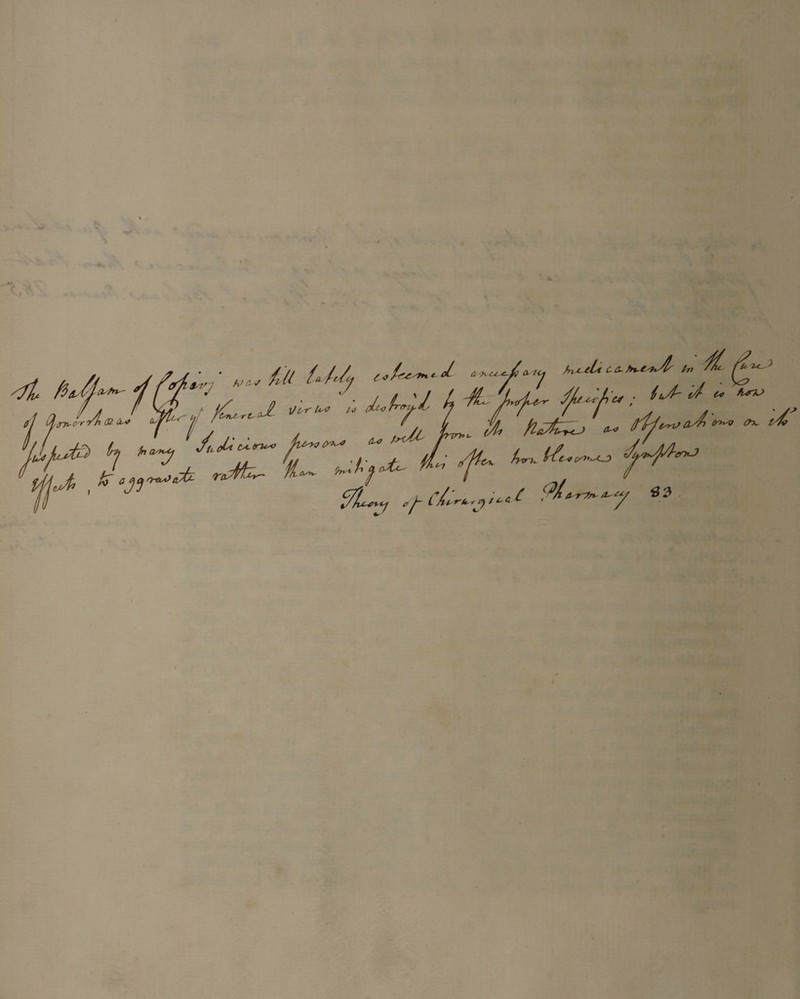 The Balsam of Copaivj was till lately esteemed a necessary medicament in the Cure
of Gonorrhæas after ye Venereal virus is destroyd by the proper Specifics ; but it is now
suspected by many Judicious persons as well from its Nature as Observations on its
Effects , to aggravate rather than mitigate this often troublesome Symptom
Theory of Chirurgical Pharmacy 83